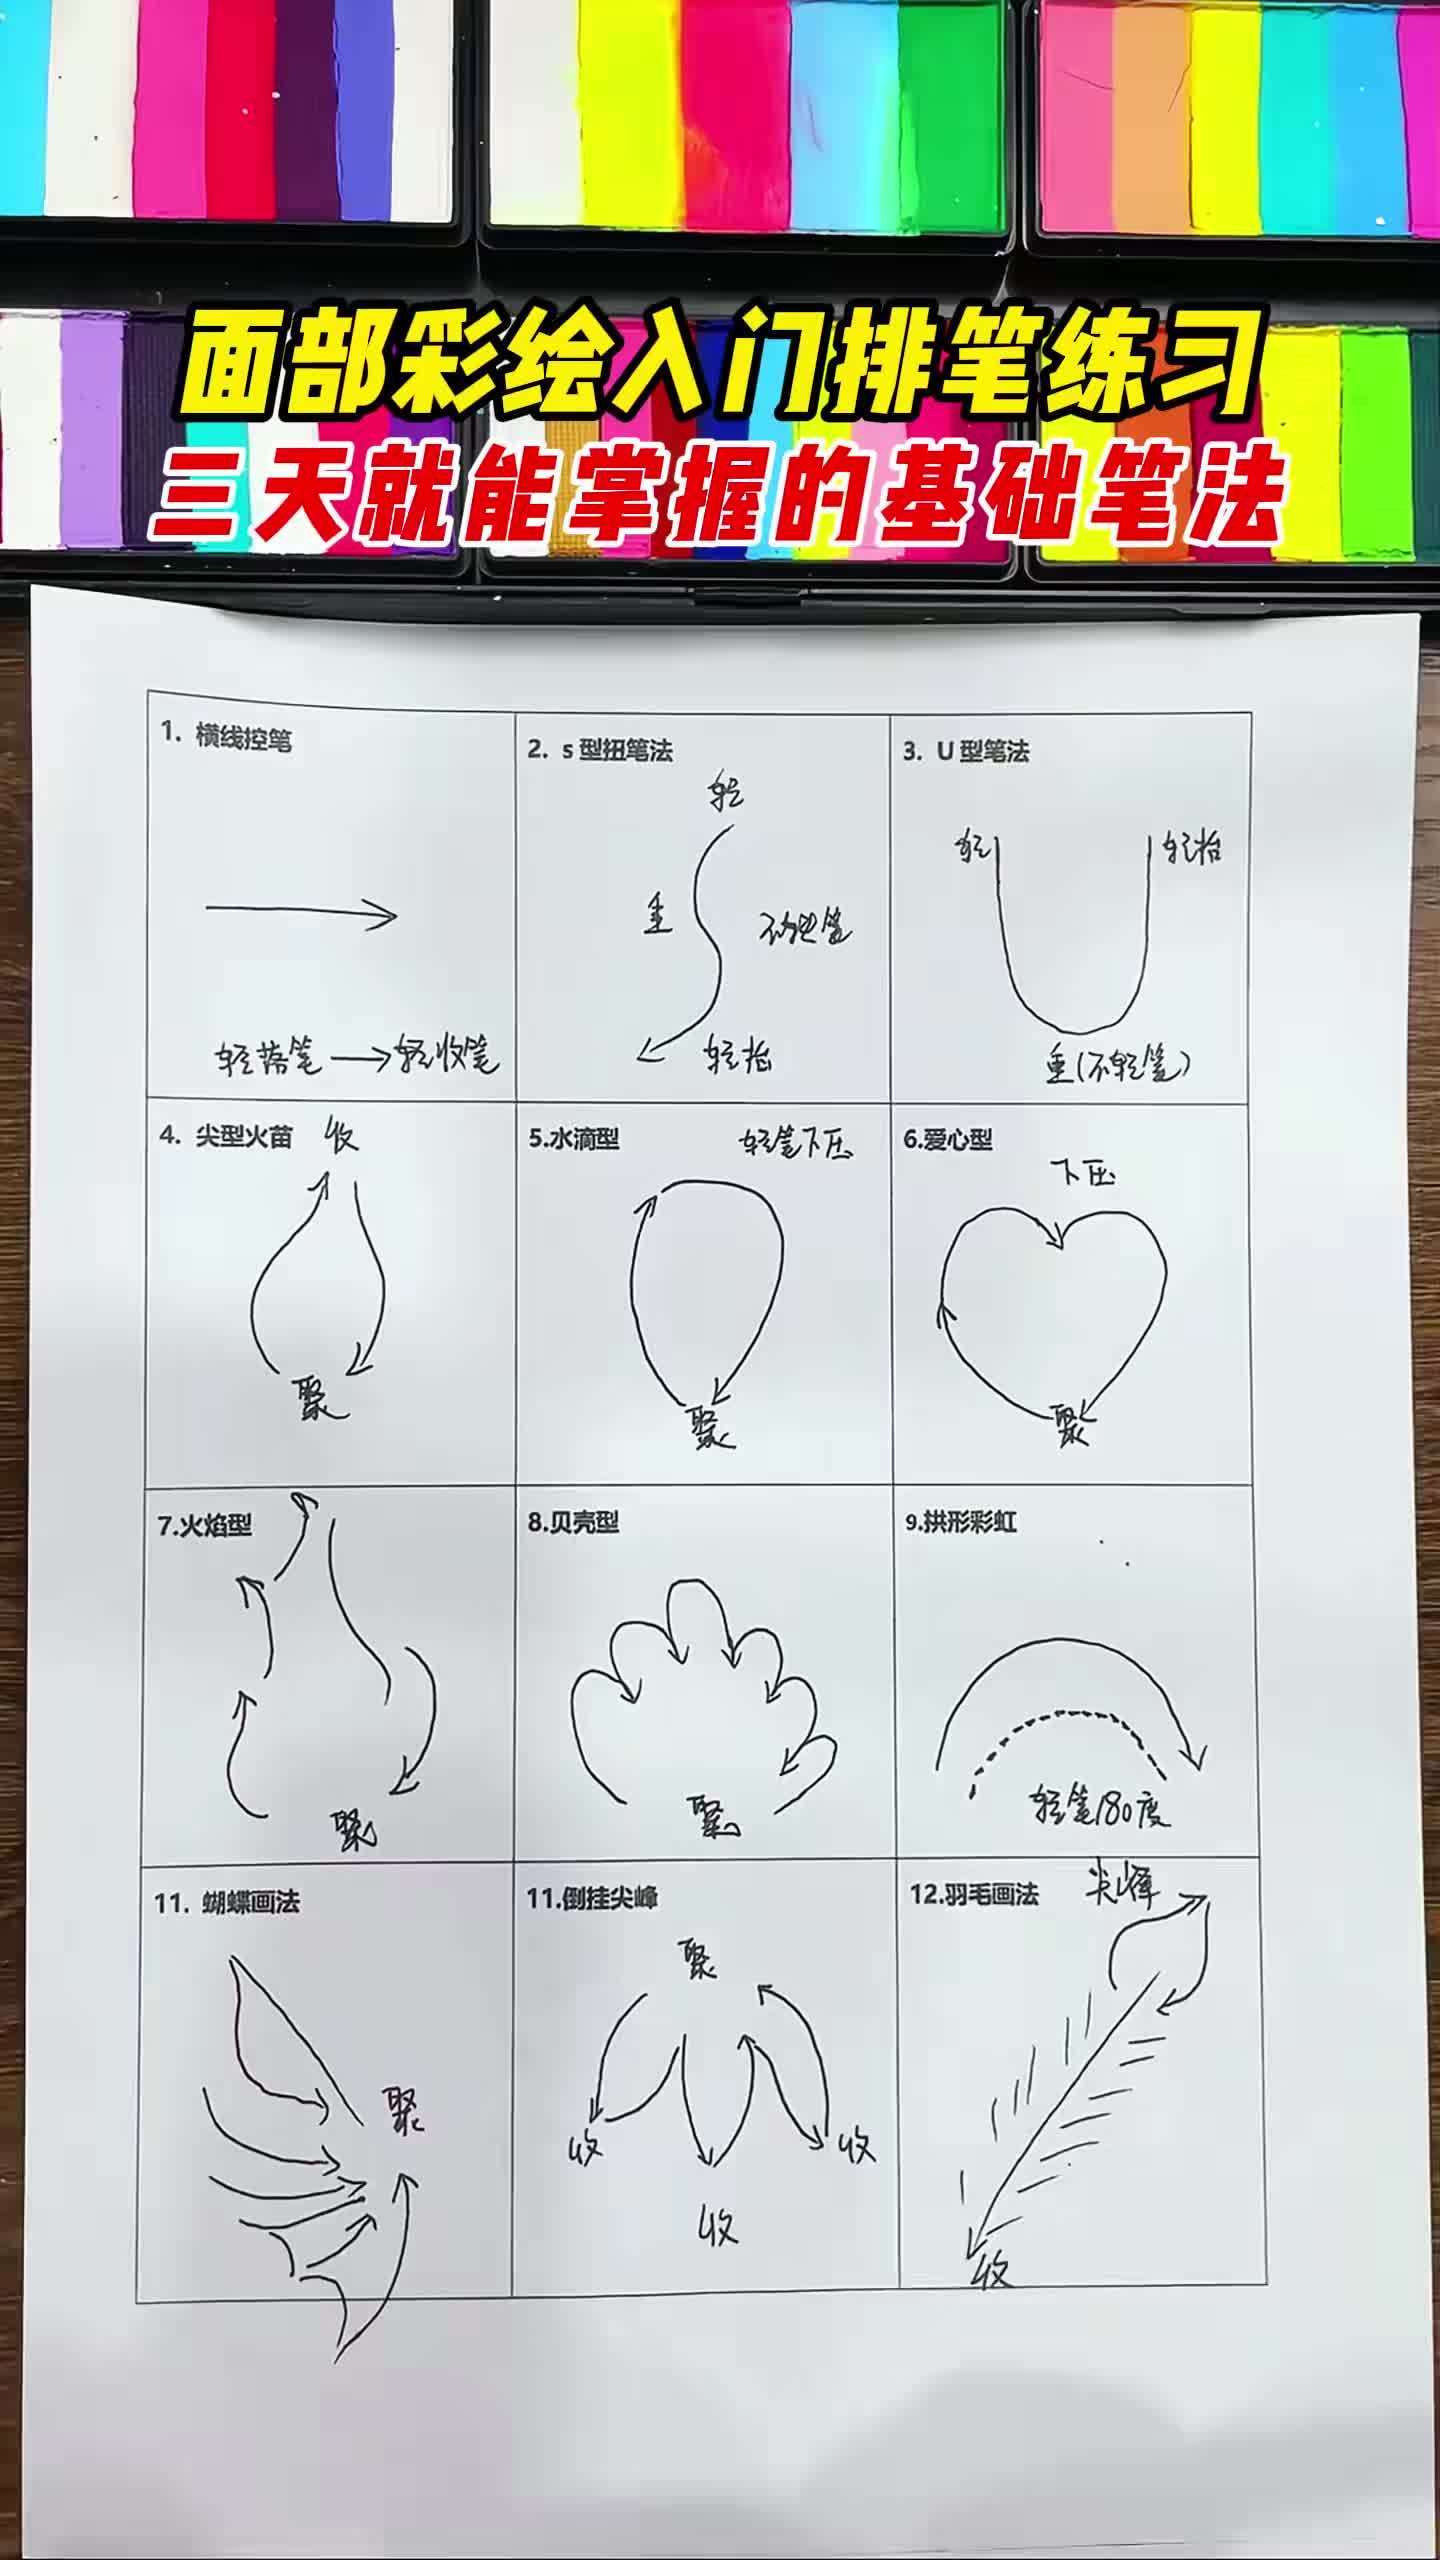 面部彩绘入门排笔练习
三天就能掌握的基础笔法
1. 横线控笔
轻落笔 轻收笔
2. s型扭笔法
轻
重
轻抬
3. U型笔法
轻
轻抬
重(不转笔)
4. 尖型火苗
收
聚
5.水滴型
转笔下压
聚
6.爱心型
下压
聚
7.火焰型
聚
8.贝壳型
聚
9.拱形彩虹
转笔180度
11. 蝴蝶画法
聚
11.倒挂尖峰
聚
收
收
收
12.羽毛画法
尖峰
收